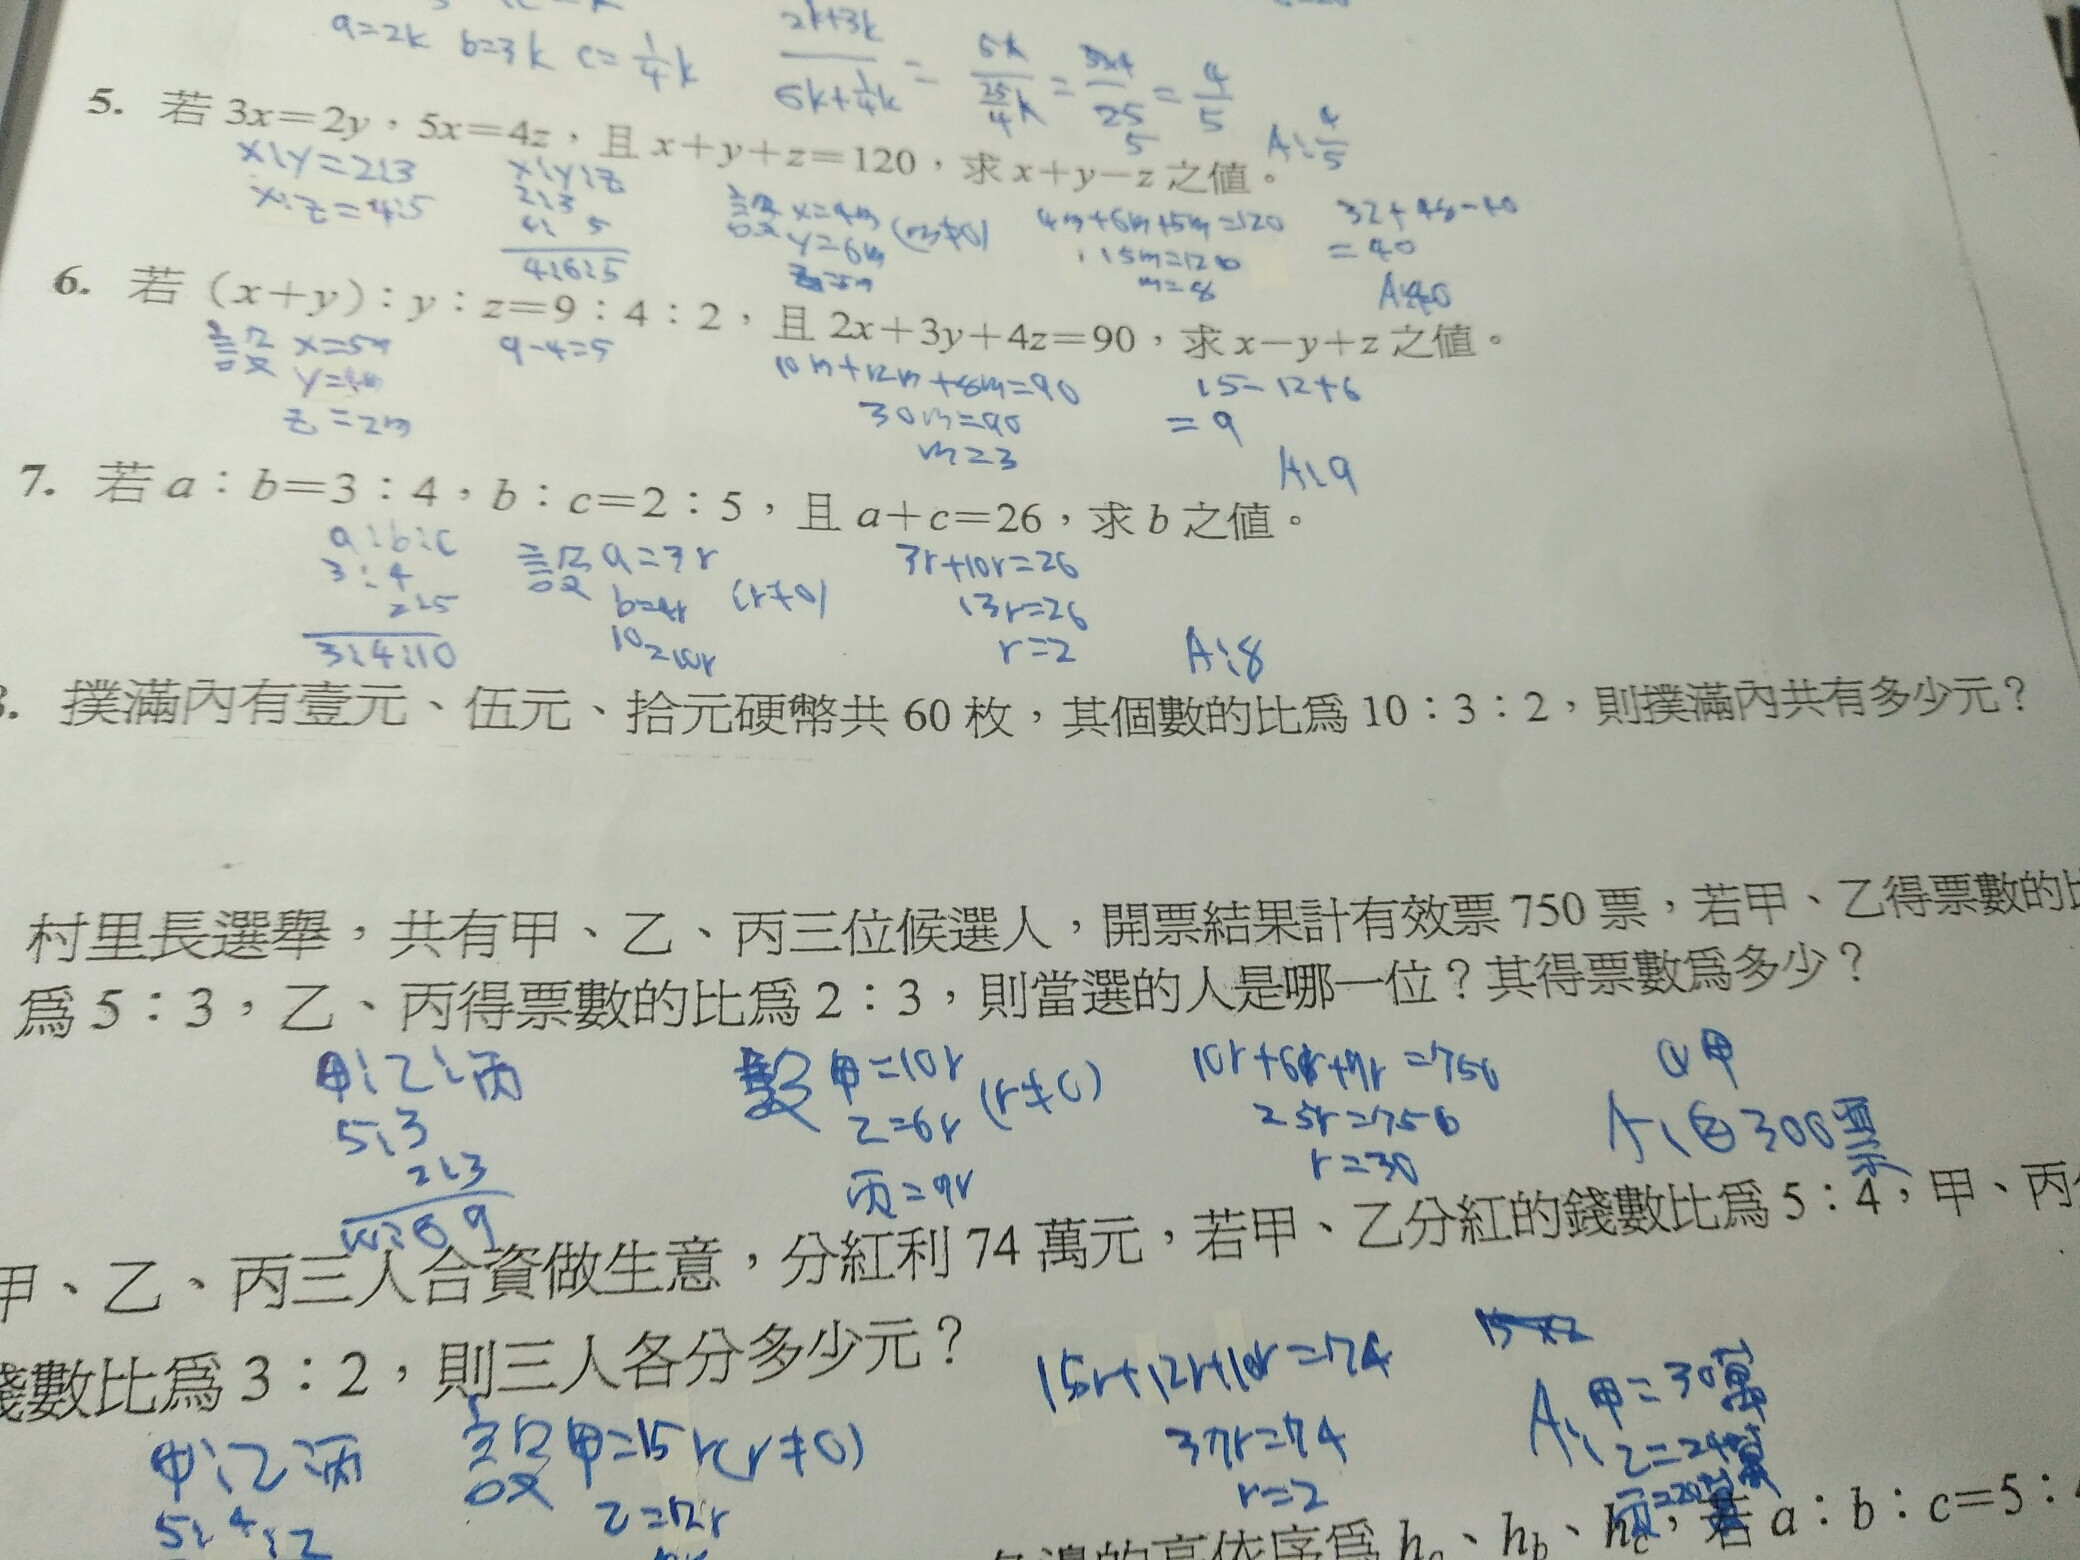 a=2k b=3k c=1/4k
2k+3k/6k+1/4k = 5k/25/4k = 5×4/25 = 4/5
5
A:4/5
5. 若 3x=2y，5x=4z，且 x+y+z=120，求 x+y−z 之值。
x:y=2:3
x:z=4:5
x:y:z
2:3
4: 5
4:6:5
設 x=4m
y=6m (m≠0)
z=5m
4m+6m+5m=120
15m=120
m=8
32+48-40
=40
A:40
6. 若 (x+y)：y：z=9：4：2，且 2x+3y+4z=90，求 x−y+z 之值。
設 x=5m
y=4m
z=2m
9-4=5
10m+12m+8m=90
30m=90
m=3
15-12+6
=9
A:9
7. 若 a：b=3：4，b：c=2：5，且 a+c=26，求 b 之值。
a:b:c
3:4
2:5
3:4:10
設 a=3r
b=4r (r≠0)
10=10r
3r+10r=26
13r=26
r=2
A:8
撲滿內有壹元、伍元、拾元硬幣共 60 枚，其個數的比為 10：3：2，則撲滿內共有多少元？
村里長選舉，共有甲、乙、丙三位候選人，開票結果計有效票 750 票，若甲、乙得票數的比
為 5：3，乙、丙得票數的比為 2：3，則當選的人是哪一位？其得票數為多少？
甲:乙:丙
5:3
2:3
10:6 9
甲=10r
乙=6r (r≠0)
丙=9r
10r+6r+9r=750
25r=750
r=30
①甲
A:②300票
甲、乙、丙三人合資做生意，分紅利 74 萬元，若甲、乙分紅的錢數比為 5：4，甲、丙分
錢數比為 3：2，則三人各分多少元？
甲:乙:丙
5:4:2
設 甲=15r(r≠0)
乙=12r
15r+12r+10r=74
37r=74
r=2
A: 甲=30萬
乙=24萬
丙=20萬
各邊的高依序為 ha、hb、hc，若 a：b：c=5：4